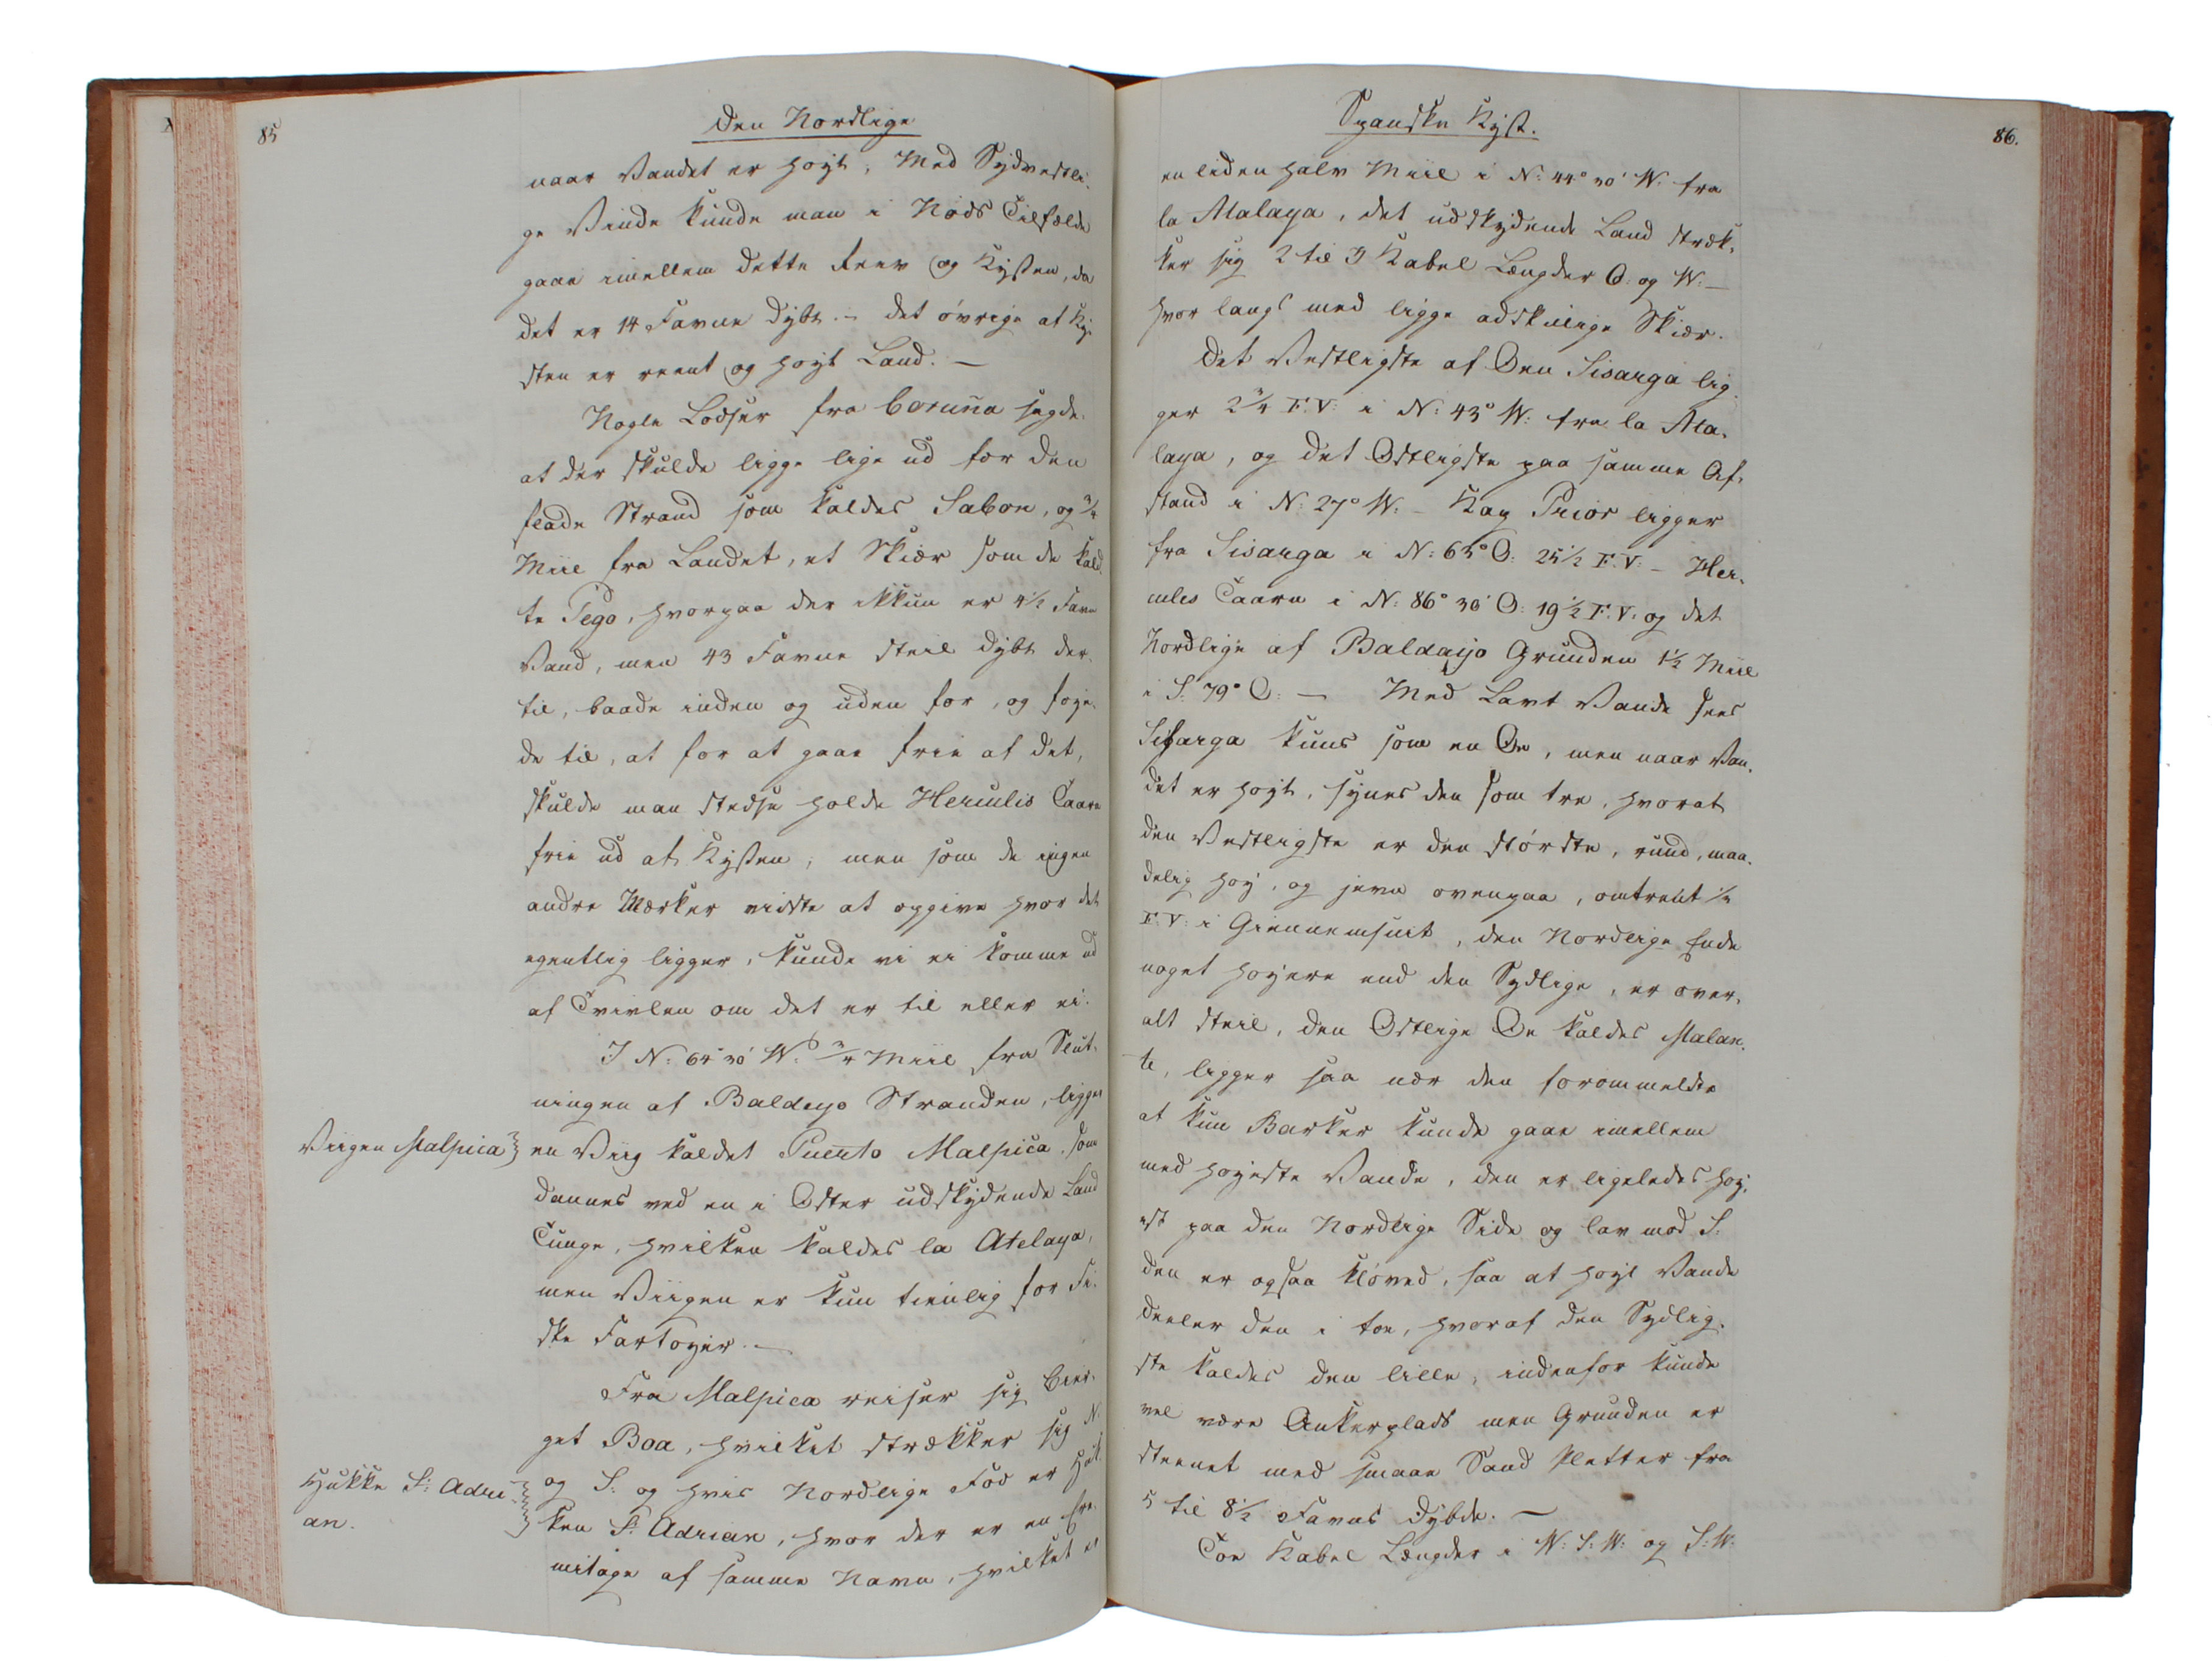 85
Den Nordlige
naar Vandet er høyt, Med Sydvestli-
ge Vinde kunde man i Nøds Tilfælde
gaae imellem dette Reev og Kysten, da
det er 14 Favne dybt. – det övrige af Ky-
sten er reent og høyt Land. –
Nogle Lodser fra Coruña sagde
at der skulde ligge lige ud for den
flade Strand som kaldes Sabon, og 3/4
Miil fra Landet, et Skiær som de kald-
te Pego, hvorpaa der ikkun er 4 1/2 Favn
Vand, men 43 Favne steil dybt der-
til, baade inden og uden for, og føye-
de til, at for at gaae frie af det,
skulde man stedse holde Herculis Taarn
frie ud af Kysten; men som de ingen
andre Mærker vidste at opgive hvor det
egentlig ligger, kunde vi ei komme ud
af Tvivlen om det er til eller ei.
I N: 64° 30' W. 3/4 Miil fra Slut-
ningen af Baldayo Stranden, ligger
Viigen Malpica
en Viig kaldet Puento Malpica, som
dannes ved en i Oster udskydende Land
Tunge, hvilken kaldes la Atelaya,
men Viigen er kun tienlig for Fi-
ske Fartøyer. –
Fra Malpica reiser sig Bier-
get Boa, hvilket strækker sig N.
Hukke S: Adri-
an.
og S: og hvis Nordlige Fod er Huk-
ken S: Adrian, hvor der er en Ere-
mitage af samme Navn, hvilket er
Spanske Kyst.
86.
en liden halv Miil i N: 44° 30' W. fra
la Atalaya, det udskydende Land stræk-
ker sig 2 til 3 Kabel Længder O: og W: –
hvor langs med ligge adskillige Skiær.
Det Vestligste af Öen Sisarga lig-
ger 2 3/4 F.V: i N: 43° W: fra la Ata-
laya, og det Ostligste paa samme Af-
stand i N: 27° W: – Kap Prior ligger
fra Sisarga i N: 65° O: 25 1/2 F.V: – Her-
cules Taarn i N: 86° 30' O: 19 1/2 F.V. og det
Nordlige af Baldaijo Grunden 1 1/2 Miil
i S. 79° O: – Med Lavt Vande sees
Sisarga kuns som en Öe, men naar Van-
det er høyt, synes den som tre, hvoraf
den Vestligste er den störste, rund, maa-
delig høy, og jevn ovenpaa, omtrent 1/2
F.V: i Giennemsnit, den Nordlige Ende
noget høyere end den Sydlige, er over-
alt steil, den Ostlige Öe kaldes Malan-
te, ligger saa nær den forommeldte
at kun Barker kunde gaae imellem
med høyeste Vande, den er ligeledes høy-
est paa den Nordlige Side og lav mod S:
den er ogsaa klöved, saa at høyt Vande
deeler den i toe, hvoraf den Sydlig-
ste kaldes den lille, indenfor kunde
vel være Ankerplads men Grunden er
steenet med smaae Sand Pletter fra
5 til 8 1/2 Favnes Dybde. –
Toe Kabel Længder i W: S: W: og S: W: